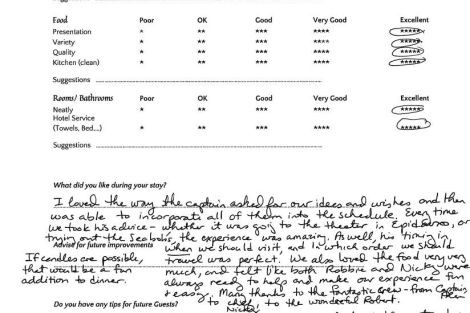 Food Poor OK Good Very Good Excellent
Presentation * ** *** **** *****
Variety * ** *** **** *****
Quality * ** *** **** *****
Kitchen (clean) * ** *** **** *****
Suggestions
Rooms/ Bathrooms Poor OK Good Very Good Excellent
Neatly
Hotel Service
(Towels, Bed....) * ** *** **** *****
Suggestions
What did you like during your stay?
I loved the way the captain asked for our ideas and wishes and then
was able to incorporate all of them into the schedule. Every time
we took his advice - whether it was going to the theater in Epidavros, or
trying out the Seabobs, the experience was amazing. As well, his timing in
when we should visit, and in which order we should
travel was perfect. We also loved the food very very
much, and felt like both Robbie and Nicky were
always ready to help and make our experience fun
& easy. Many thanks to the fantastic crew - from Captain
to chef, to the wonderful Robert.
Nicky
Advise for future improvements
If candles are possible,
that would be a fun
addition to dinner.
Do you have any tips for future Guests?